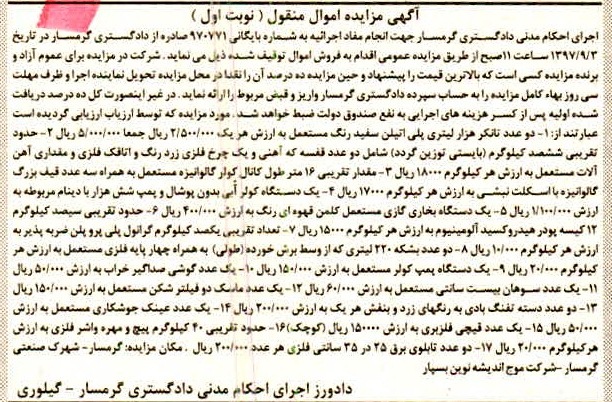 آگهی مزایده اموال منقول ( نوبت اول )
اجرای احکام مدنی دادگستری گرمسار جهت انجام مفاد اجرائیه به شماره بایگانی ۹۷۰۷۷۱ صادره از دادگستری گرمسار در تاریخ
۱۳۹۷/۹/۳ ساعت ۱۱صبح از طریق مزایده عمومی اقدام به فروش اموال توقیف شده ذیل می نماید . شرکت در مزایده برای عموم آزاد و
برنده مزایده کسی است که بالاترین قیمت را پیشنهاد و حین مزایده ده درصد آن را نقدا در محل مزایده تحویل نماینده اجرا و ظرف مهلت
سی روز بهاء کامل مزایده را به حساب سپرده دادگستری گرمسار واریز و قبض مربوط را ارائه نماید . در غیر اینصورت کل ده درصد دریافت
شده اولیه پس از کسر هزینه های اجرایی به نفع صندوق دولت ضبط خواهد شد. مورد مزایده که توسط ارزیاب ارزیابی گردیده است
عبارتند از: ۱- دو عدد تانکر هزار لیتری پلی اتیلن سفید رنگ مستعمل به ارزش هر یک ۲/۵۰۰/۰۰۰ ریال جمعا ۵/۰۰۰/۰۰۰ ریال ۲- حدود
تقریبی ششصد کیلوگرم (بایستی توزین گردد) شامل دو عدد قفسه که آهنی و یک چرخ فلزی زرد رنگ و اتاقک فلزی و مقداری آهن
آلات مستعمل به ارزش هر کیلوگرم ۱۸۰۰۰ ریال ۳- مقدار تقریبی ۱۶ متر طول کانال کولر گالوانیزه مستعمل به همراه سه عدد قیف بزرگ
گالوانیزه با اسکلت نبشی به ارزش هر کیلوگرم ۱۷۰۰۰ ریال ۴- یک دستگاه کولر آبی بدون پوشال و پمپ شش هزار با دینام مربوطه به
ارزش ۱/۱۰۰/۰۰۰ ریال ۵- یک دستگاه بخاری گازی مستعمل کلمن قهوه ای رنگ به ارزش ۴۰۰/۰۰۰ ریال ۶- حدود تقریبی سیصد کیلوگرم
۱۲ کیسه پودر هیدروکسید آلومینیوم به ارزش هر کیلوگرم ۱۵۰۰۰ ریال ۷- تعداد تقریبی یکصد کیلوگرم گرانول پلی پرو پلن ضربه پذیر به
ارزش هر کیلوگرم ۱۰/۰۰۰ ریال ۸- دو عدد بشکه ۲۲۰ لیتری که از وسط برش خورده (طولی) به همراه چهار پایه فلزی مستعمل به ارزش هر
کیلوگرم ۲۰/۰۰۰ ریال ۹- یک دستگاه پمپ کولر مستعمل به ارزش ۱۵۰/۰۰۰ ریال ۱۰- یک عدد گوشی صداگیر خراب به ارزش ۵۰/۰۰۰ ریال
۱۱- یک عدد سوهان بیست سانتی مستعمل به ارزش ۶۰/۰۰۰ ریال ۱۲- یک عدد ماسک دو فیلتر شکن مستعمل به ارزش ۱۵۰/۰۰۰ ریال
۱۳- دو عدد دسته تفنگ بادی به رنگهای زرد و بنفش هر یک به ارزش ۲۰۰/۰۰۰ ریال ۱۴- یک عدد عینک جوشکاری مستعمل به ارزش
۵۰/۰۰۰ ریال ۱۵- یک عدد قیچی فلزبری به ارزش ۱۵۰۰۰۰ ریال (کوچک) ۱۶- حدود تقریبی ۴۰ کیلوگرم پیچ و مهره واشر فلزی به ارزش
هرکیلوگرم ۲۰/۰۰۰ ریال ۱۷- دو عدد تابلوی برق ۲۵ در ۳۵ سانتی فلزی هر عدد ۲۰۰/۰۰۰ ریال . مکان مزایده: گرمسار- شهرک صنعتی
گرمسار -شرکت موج اندیشه نوین بسپار
دادورز اجرای احکام مدنی دادگستری گرمسار - گیلوری